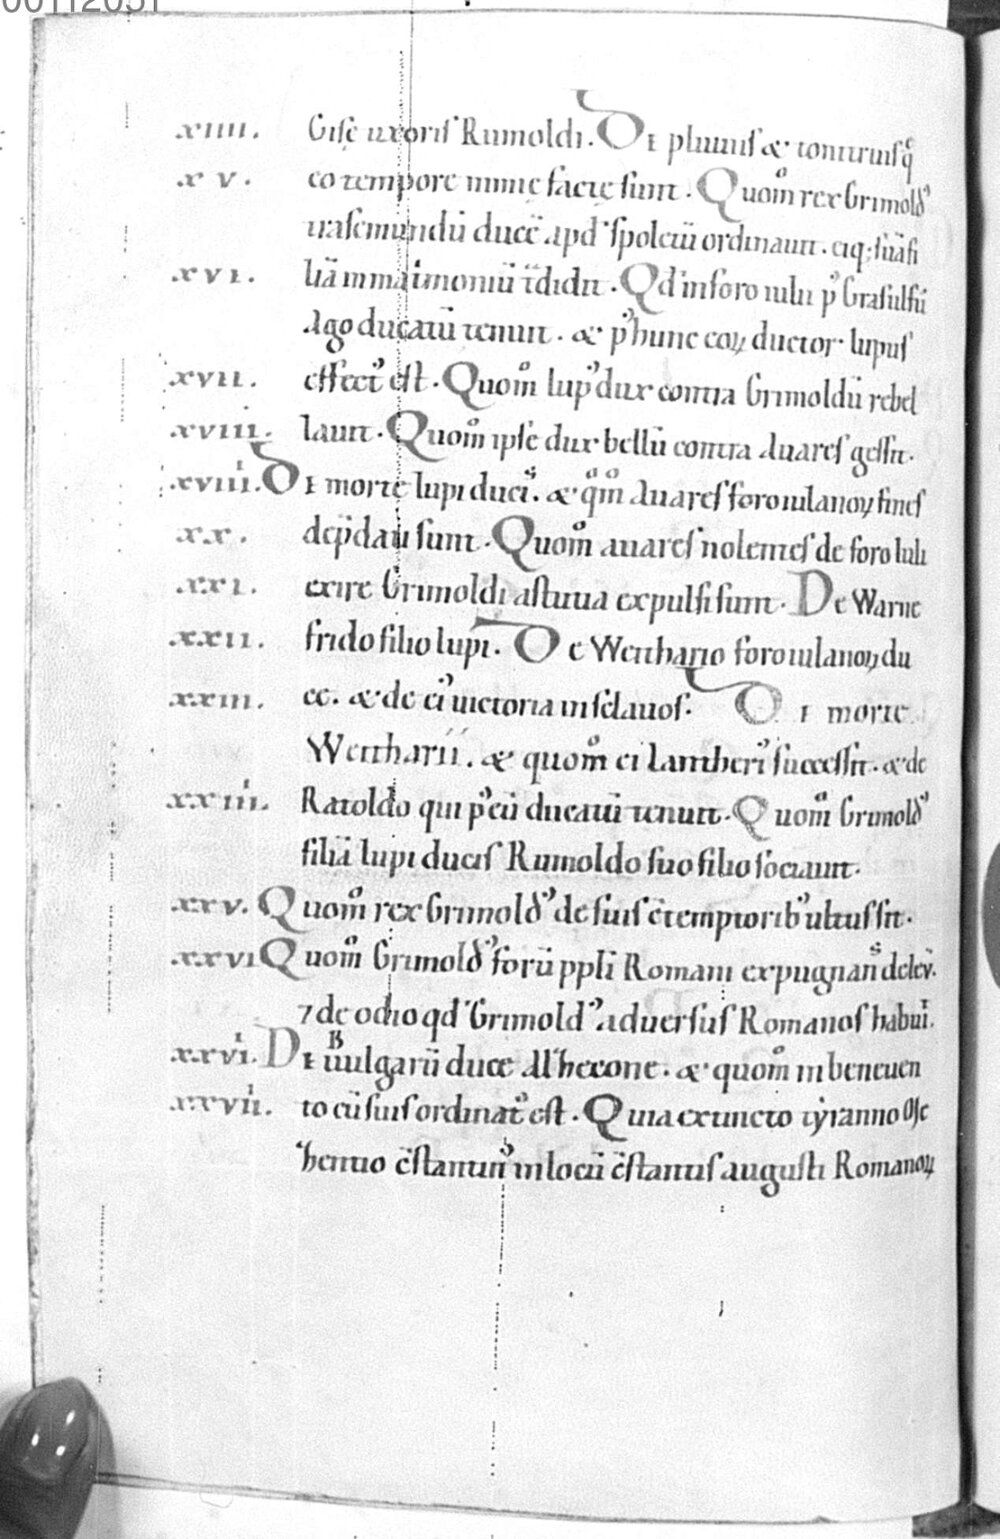 00112051
xiiii. Gisę uxoris Rumoldi. De pluuiis & tonitruis q̄
xv. eo tempore nimię factę sunt. Quom̊ rex Grimold᾿
uasemundū ducē apd spoletiū ordinauit. eiq; suā fi
xvi. liā in matrimoniū tdidit. Qd in foro iulii p᾿ Grasulfū
Ago ducatū tenuit. & p᾿ hunc eoꝝ ductor lupus
xvii. effect᾿ est. Quom̊ lup᾿ dux contra Grimoldū rebel
xviii. lauit. Quom̊ ipse dux bellū contra Auares gessit.
xviiii. De morte lupi ducis. & qm̊ Auares foroiulanoꝝ fines
xx. dep̄dati sunt. Quom̊ auares nolentes de foro Iulii
xxi. exire Grimoldi astutia expulsi sunt. De Warne
xxii. frido filio lupi. De Wecthario foroiulanoꝝ du
xxiii. ce. & de ei᾿ uictoria in sclauos. De morte
Wectharii. & quom̊ ei lantbert᾿ successit. & de
xxiiii. Ratoldo qui p᾿ eū ducatū tenuit. Quom̊ Grimold᾿
filiā lupi ducis Rumoldo suo filio sociauit.
xxv. Quom̊ rex Grimold᾿ de suis c̄temptorib᾿ ultus sit.
xxvi Quom̊ Grimold᾿ forū ppli Romani expugnans delev̄.
7 de odio qd Grimold᾿ aduersus Romanos habuit.
xxvii. De uulgarū duce Alhexone. & quom̊ in beneuen
xxviii. to cū suis ordinat᾿ est. Quia extincto tẏranno Me
hentio c̄stantin᾿ in locū c̄stantis augusti Romanoꝝ